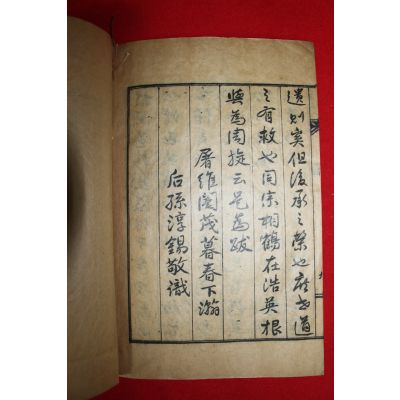 遺則實但後承之榮也庶世道
之有救也同宗相鶴在浩英根
與爲周旋云是爲跋
屠維閹茂暮春下澣
后孫淳錫敬識